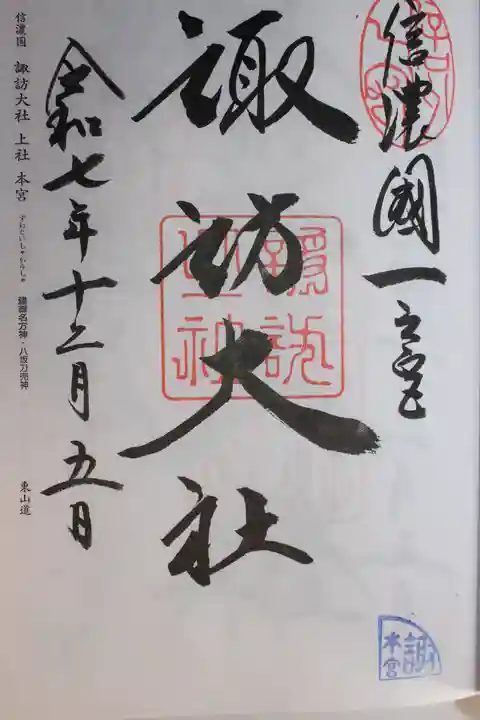 信濃國一之宮
諏訪大社
令和七年十二月五日
信濃国 諏訪大社 上社 本宮 すわたいしゃかみしゃ 建御名方神・八坂刀売神 東山道
諏訪
本宮